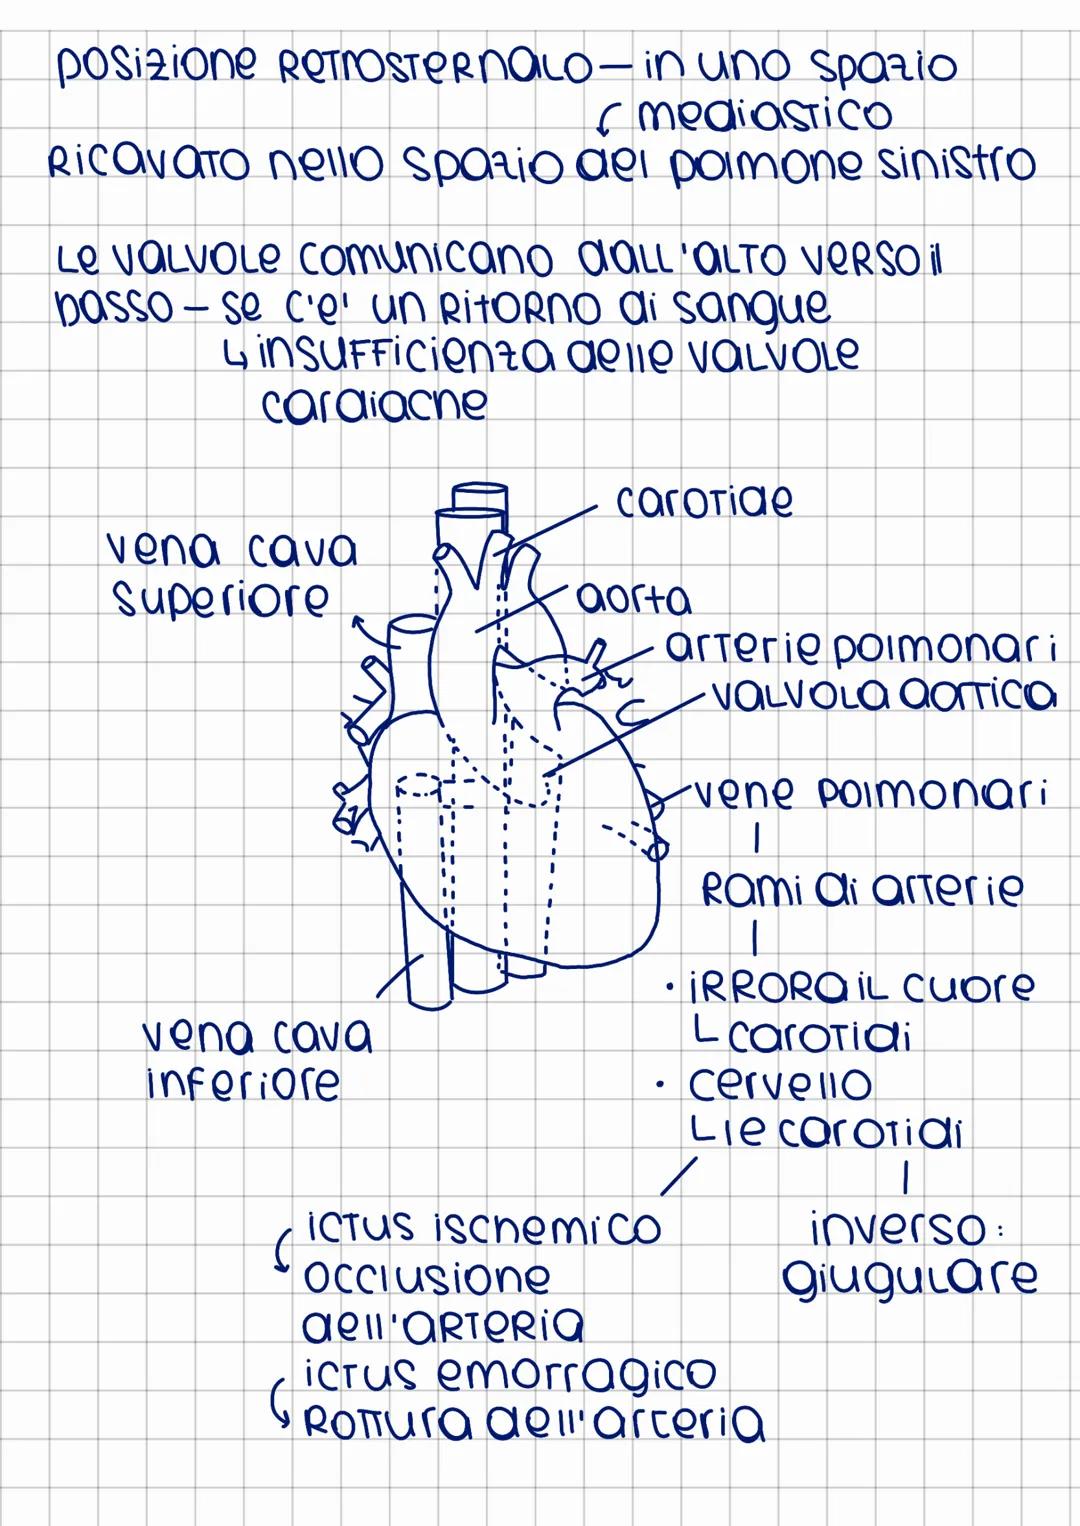 posizione retrosternalo – in uno spazio
mediastico
Ricavato nello spazio del polmone sinistro
Le valvole comunicano dall'alto verso il
basso – se c'e' un ritorno di sangue
↳ insufficienza delle valvole
cardiache
carotide
vena cava
superiore
aorta
arterie polmonari
valvola aortica
vene polmonari
Rami di arterie
· irrora il cuore
L carotidi
vena cava
inferiore
· cervello
L le carotidi
ictus ischemico
occlusione
dell'arteria
ictus emorragico
Rottura dell'arteria
inverso:
giugulare